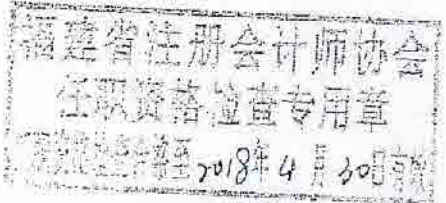 福建省注册会计师协会
任职资格检查专用章
至2018年4月30日有效